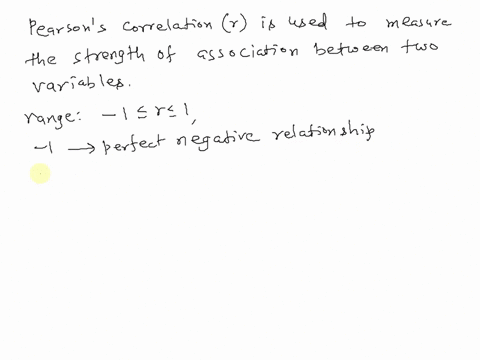 Pearson's correlation (r) is used to measure
the strength of association between two
variables.
range: -1 ≤ r ≤ 1,
-1 → perfect negative relationship